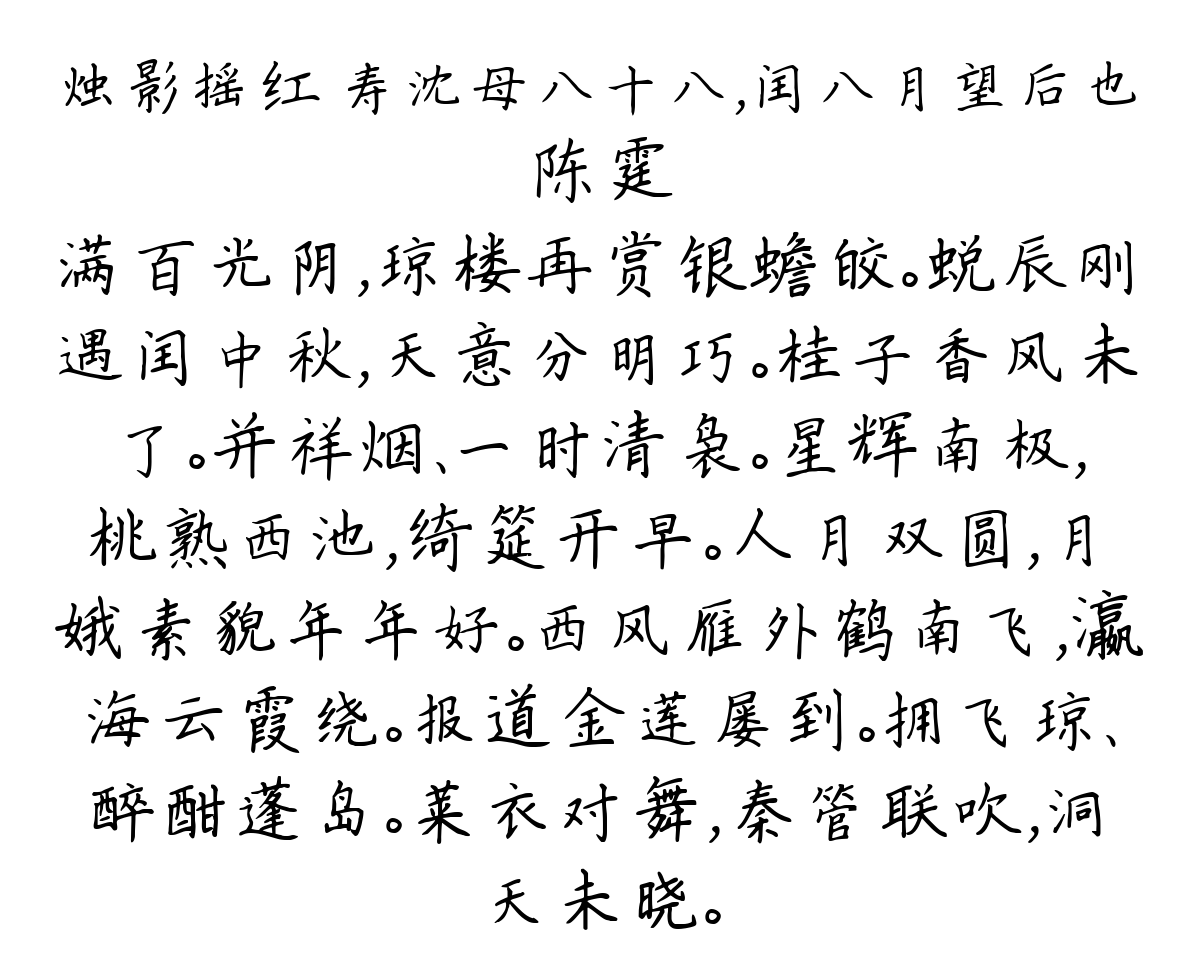 烛影摇红 寿沈母八十八,闰八月望后也
陈霆
满百光阴,琼楼再赏银蟾皎。蜕辰刚
遇闰中秋,天意分明巧。桂子香风未
了。并祥烟、一时清袅。星辉南极,
桃熟西池,绮筵开早。人月双圆,月
娥素貌年年好。西风雁外鹤南飞,瀛
海云霞绕。报道金莲屡到。拥飞琼、
醉酣蓬岛。莱衣对舞,秦管联吹,洞
天未晓。